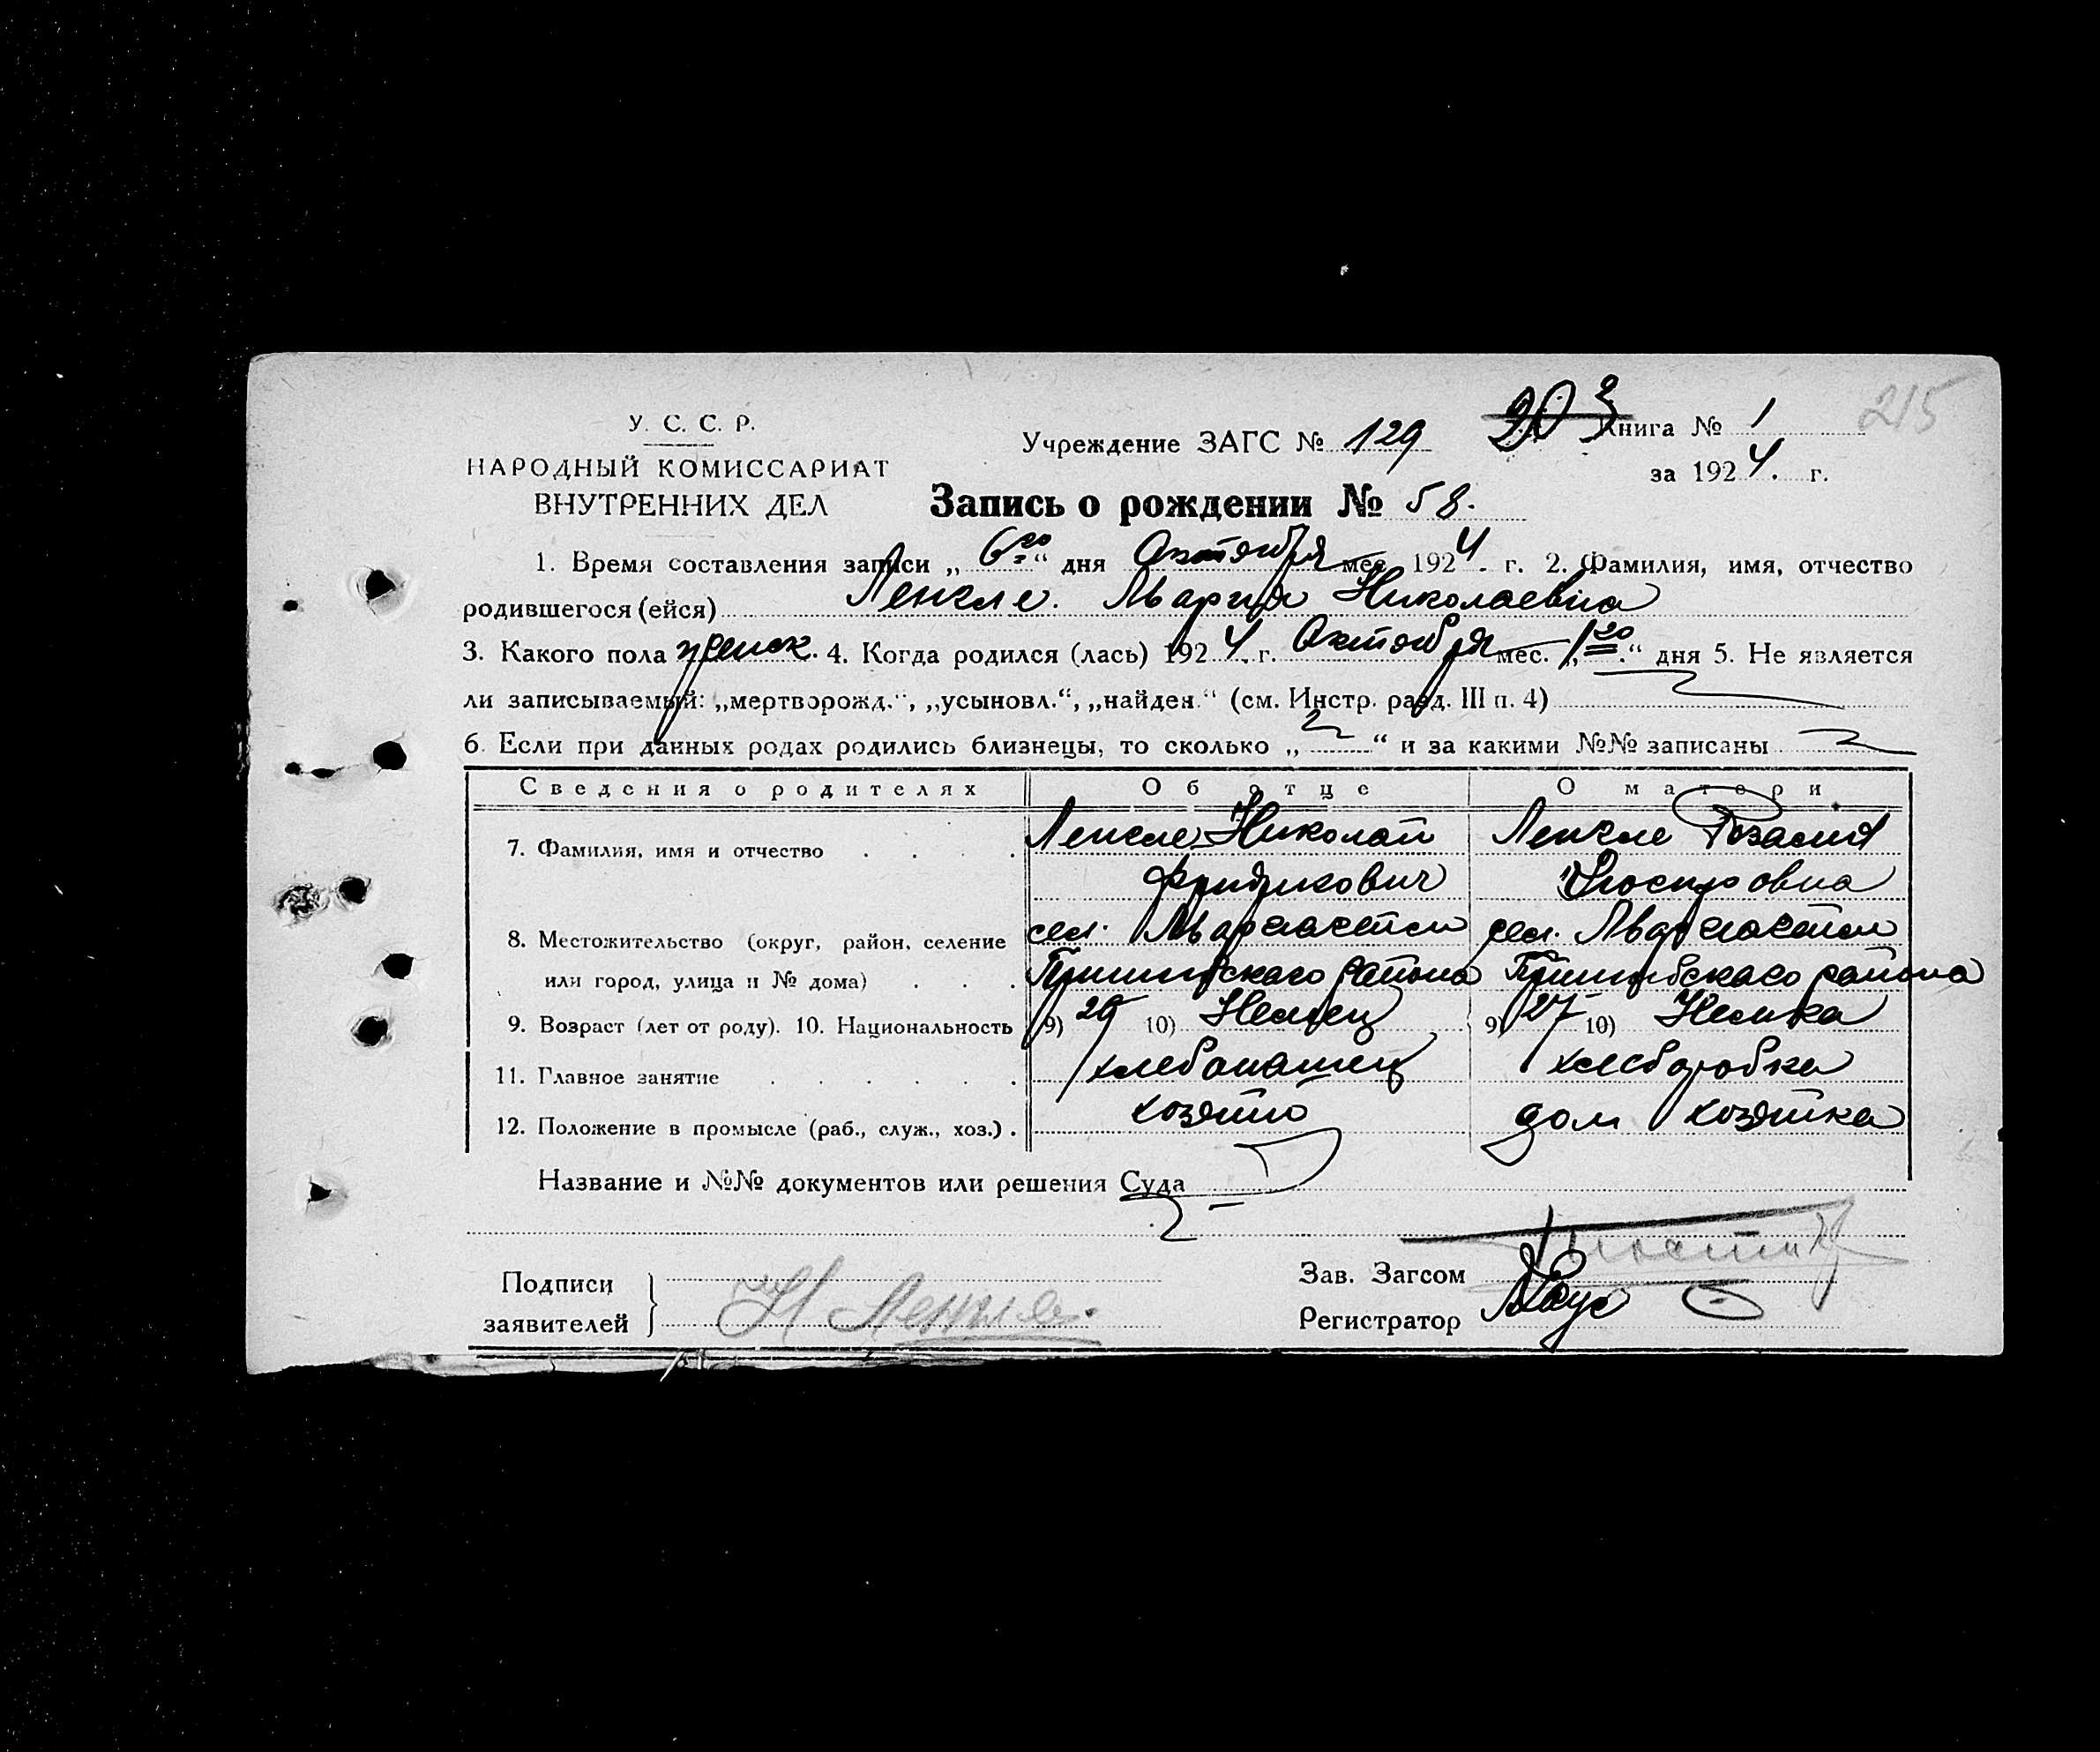 215
У. С. С. Р.
НАРОДНЫЙ КОМИССАРИАТ
ВНУТРЕННИХ ДЕЛ
Учреждение ЗАГС № 129
Книга № 1
за 1924. г.
Запись о рождении № 58.
1. Время составления записи „6го“ дня Октября мес. 1924. г. 2. Фамилия, имя, отчество
родившегося (ейся) Ленгле. Мария Николаевна
3. Какого пола женск. 4. Когда родился (лась) 1924. г. Октября мес. „1го“ дня 5. Не является
ли записываемый: „мертворожд.“, „усыновл.“, „найден.“ (см. Инстр. разд. III п. 4)
6. Если при данных родах родились близнецы, то сколько „ “ и за какими №№ записаны
Сведения о родителях Об отце О матери
7. Фамилия, имя и отчество Ленгле Николай Ленгле Розалия
Фридрихович Иосифовна
8. Местожительство (округ, район, селение сел. сел.
или город, улица и № дома) Пришибскаго района Пришибскаго района
9. Возраст (лет от роду). 10. Национальность 9) 29 10) Немец 9) 27 10) Немка
11. Главное занятие хлебопашец хлеборобка
12. Положение в промысле (раб., служ., хоз.) хозяин дом хозяйка
Название и №№ документов или решения Суда
Подписи
заявителей
Н Ленгле.
Зав. Загсом
Регистратор